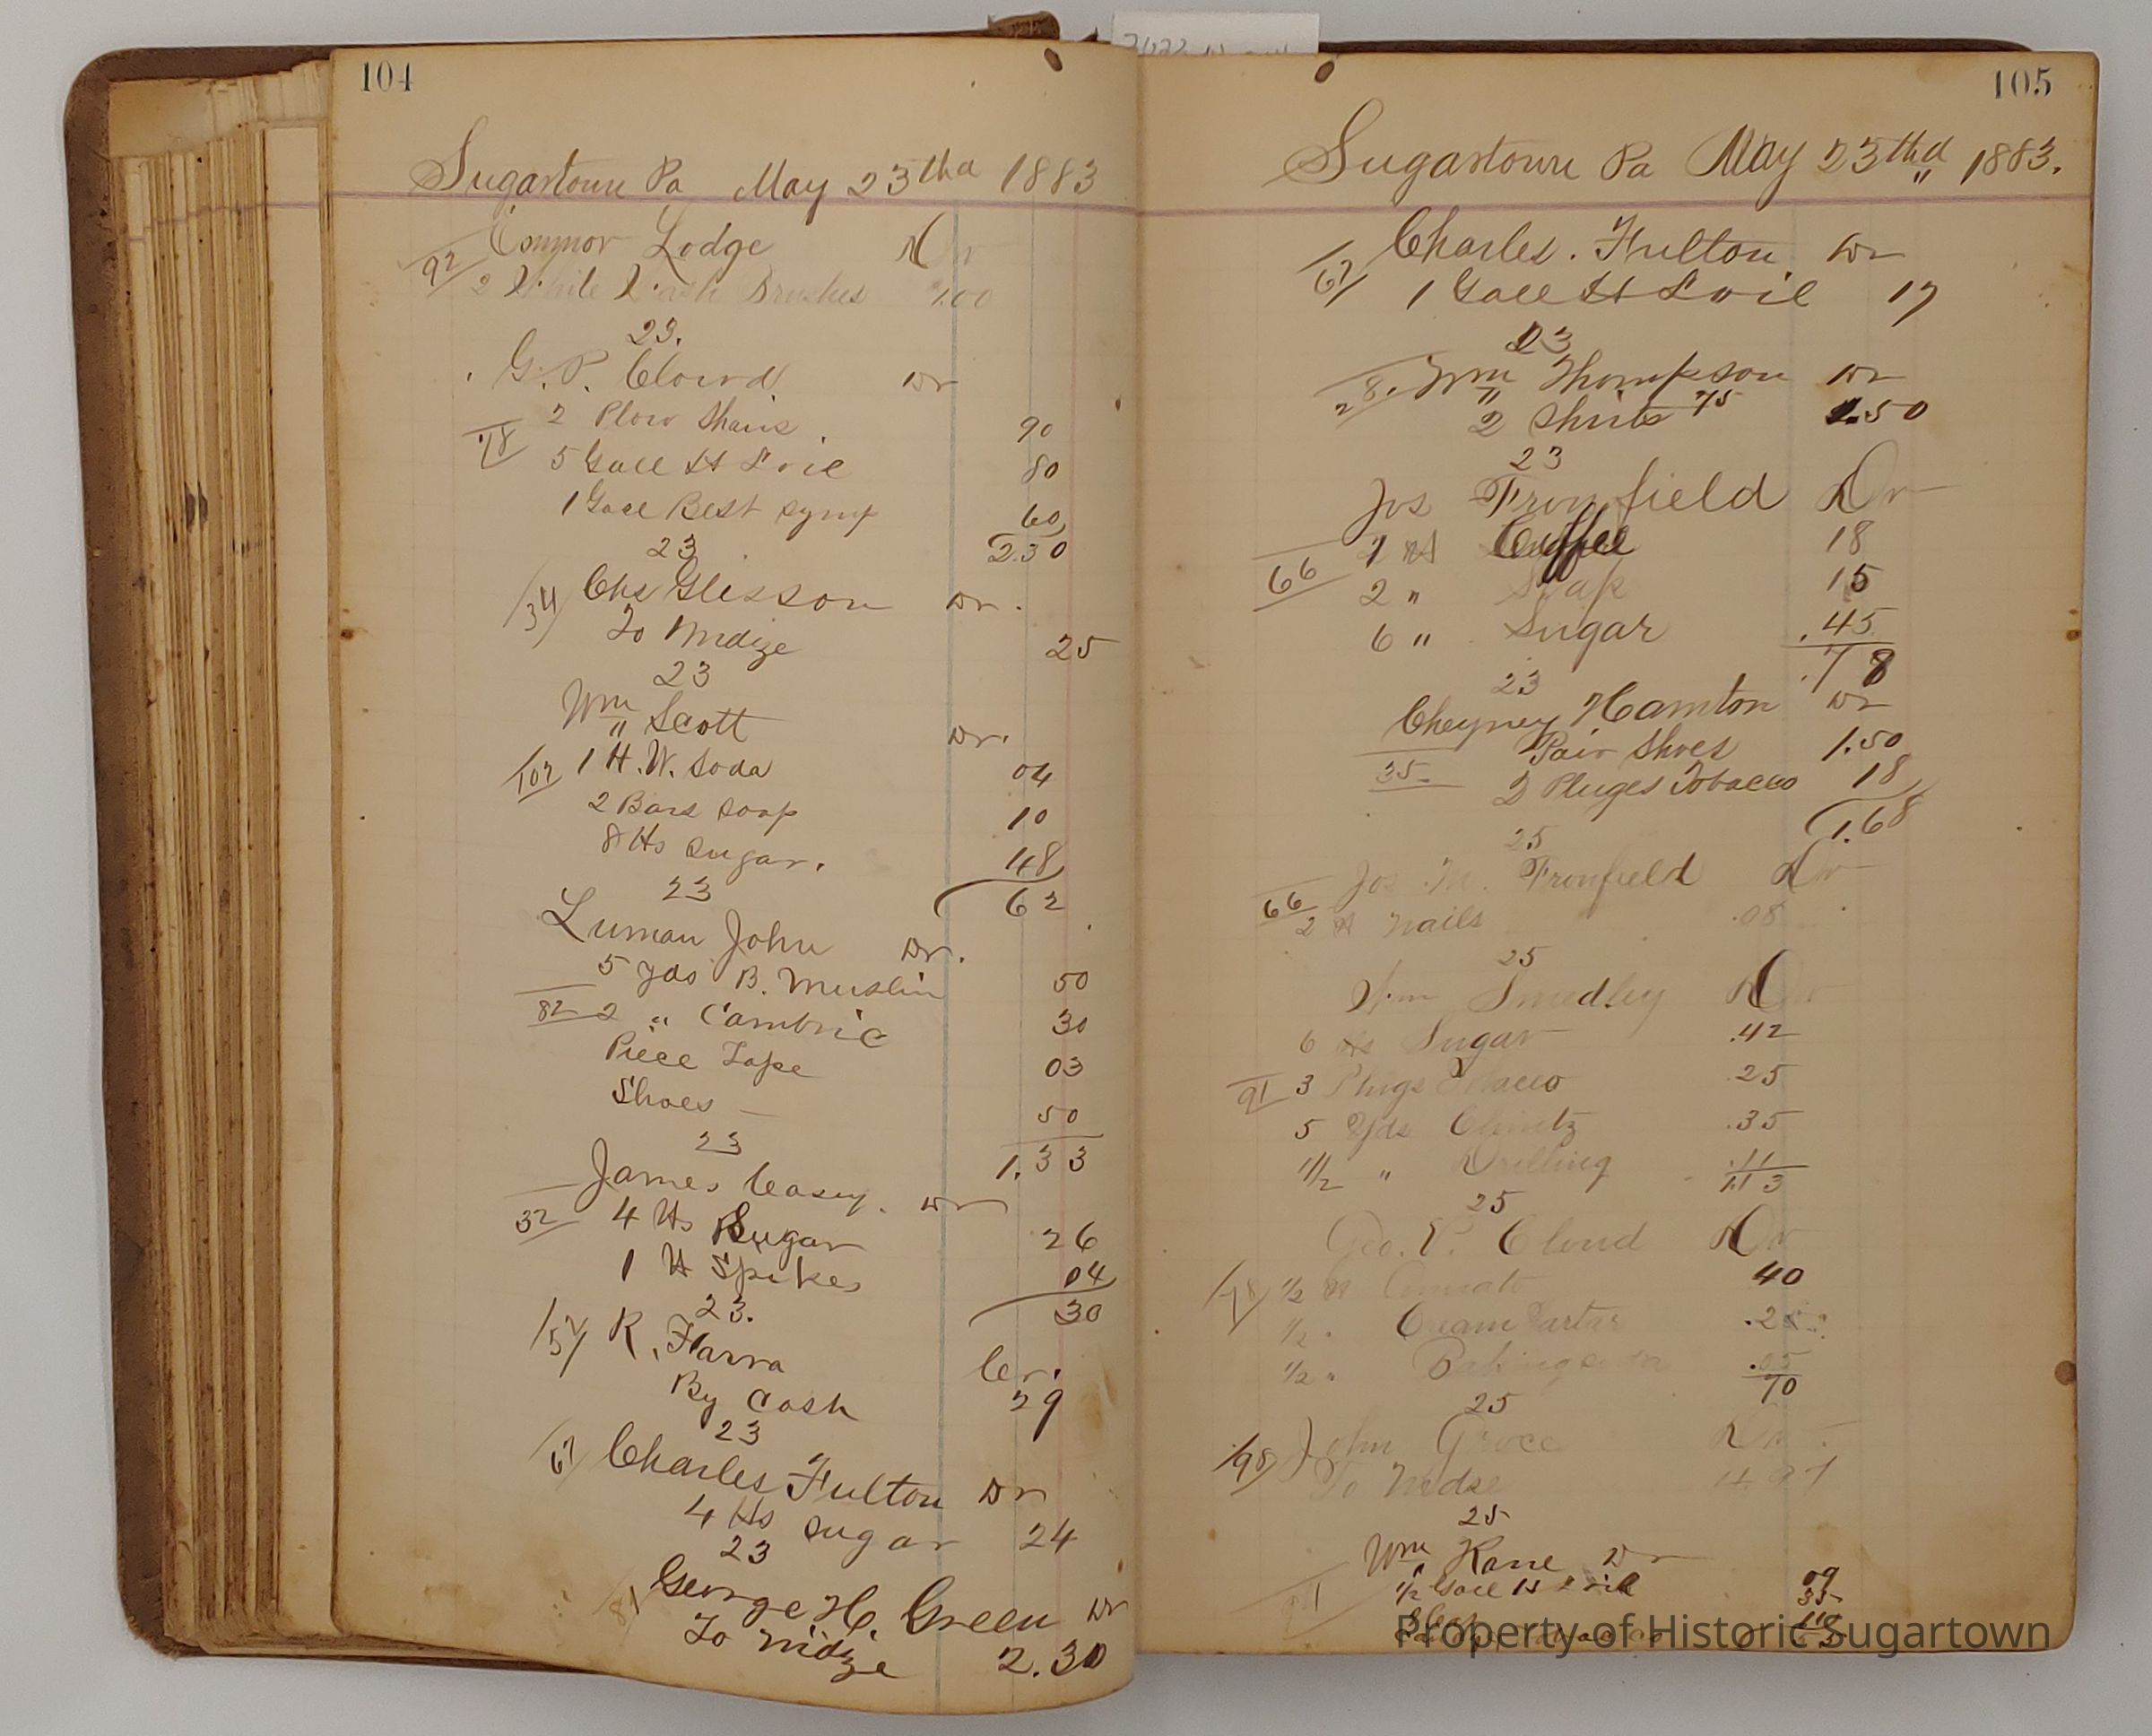 104
Sugartown Pa May 23thd 1883
Connor Lodge Dr
97 2 White Wash Brushes 1.00
23.
G. P. Cloud Dr
2 Plow Shairs 90
78
5 Gall H L oil 80
1 Gall Best Syrup 60
23 2.30
34 Chs Glisson Dr.
To Mdize 25
23
Wm Scott Dr.
107 1 H. W. Soda 04
2 Bars Soap 10
8 lbs Sugar. 48
23 62
Luman John Dr.
5 yds B. Muslin 50
82 2 " Cambric 30
Piece Tape 03
Shoes — 50
23 1.33
James Casey. Dr
32 4 lbs Sugar 26
1 lb Spikes 04
23. 30
57 R. Farra Cr.
By Cash 29
23
67 Charles Fulton Dr
4 lbs Sugar 24
23
81 George H. Green Dr
To Mdize 2.30
105
Sugartown Pa May 23thd 1883.
67 Charles. Fulton Dr
1 Gall H L oil 17
23
28. Wm Thompson Dr
2 Shirts 75 1.50
23
Jos Fronfield Dr
1 lb Coffee 18
66
2 " Soap 15
6 " Sugar .45
.78
23
Cheyney Hamton Dr
Pair Shoes 1.50
35
2 Pluges Tobacco 18
1.68
25
Jos. M. Fronfield Dr
66
2 lb Nails .08
25
Smedley Dr
6 lbs Sugar .42
91 3 Plugs Tobacco .25
5 Yds Chintz .35
1 1/2 " Drilling .11
1.13
25
Geo. P. Cloud Dr
78 1/2 lb 40
1/2 " Cream Tartar .25
1/2 " Baking soda .05
70
25
98 John Groce Dr
To Mdse
25
Wm Kane Dr
1/2 Gall H L oil 09
35
Property of Historic Sugartown